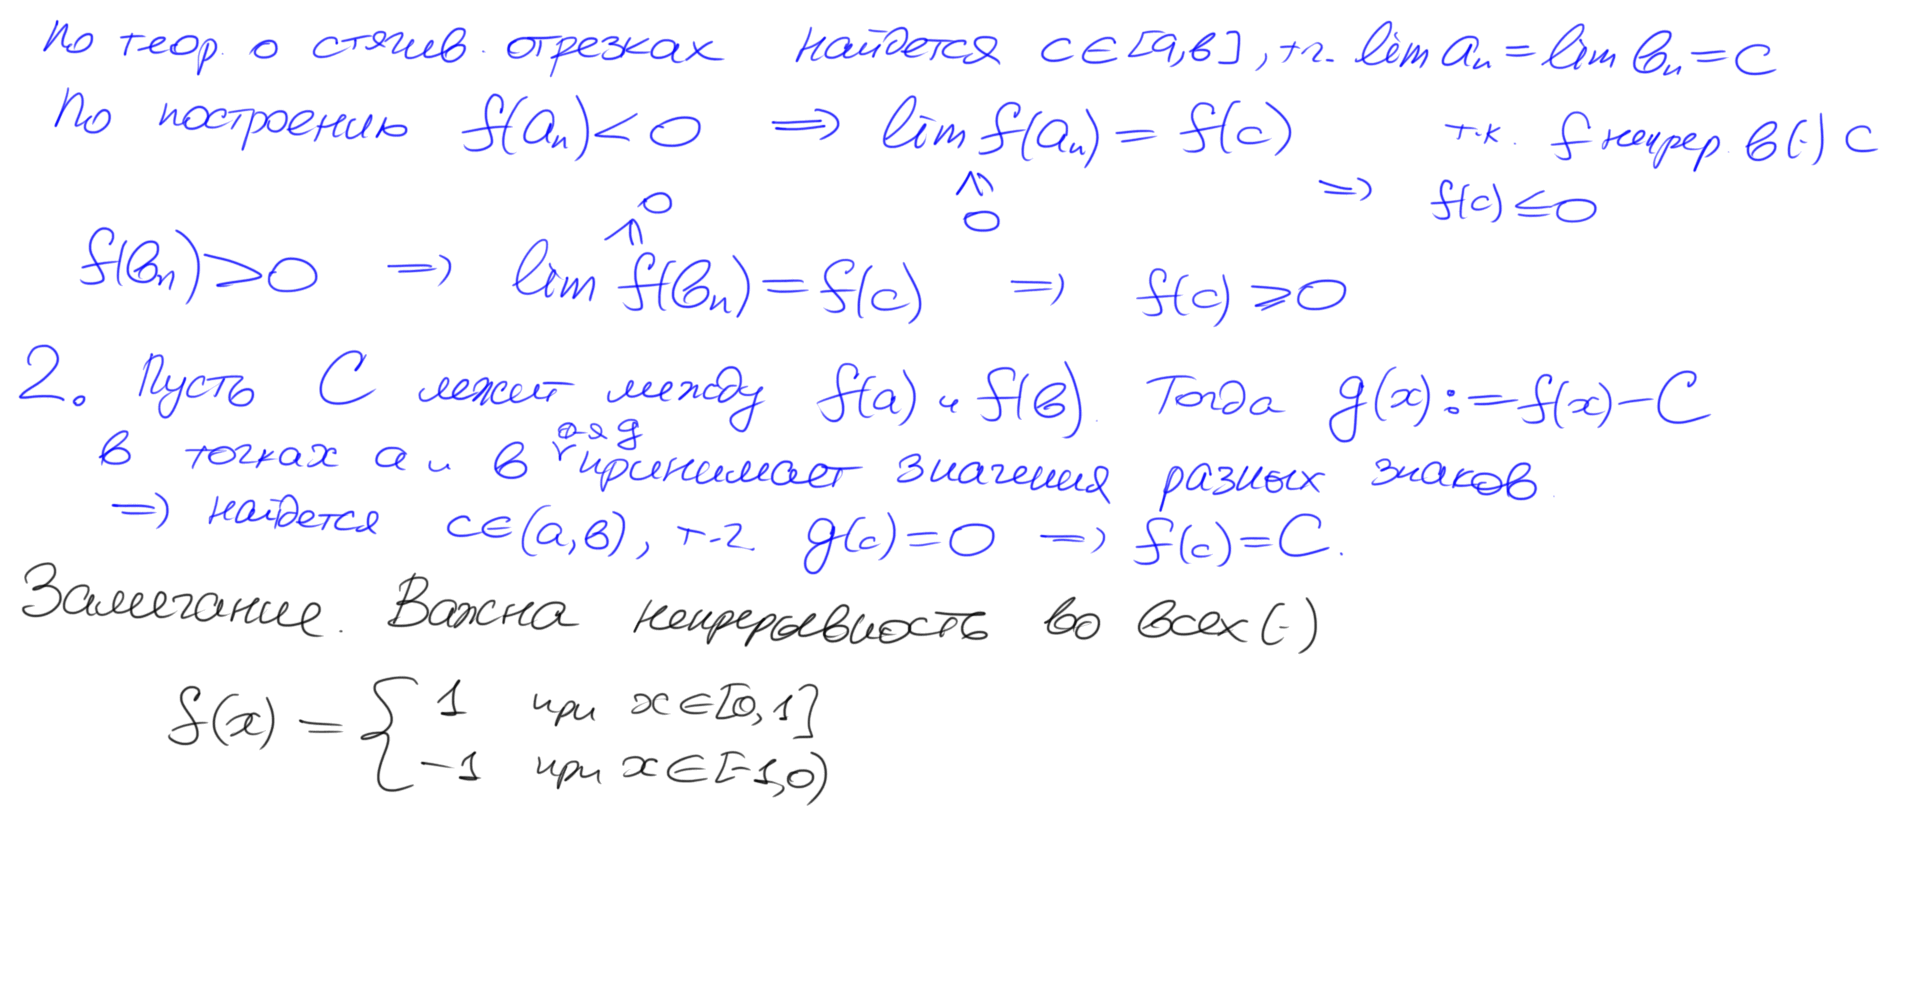 По теор. о стягив. отрезках найдется c∈[a,b], т.ч. lim aₙ = lim bₙ = c
По построению f(aₙ) < 0 ⇒ lim f(aₙ) = f(c) т.к. f непрер. в (·) c
≤
0
⇒ f(c) ≤ 0
0
≤
f(bₙ) > 0 ⇒ lim f(bₙ) = f(c) ⇒ f(c) ⩾ 0
2. Пусть C лежит между f(a) и f(b). Тогда g(x) := f(x) − C
ф-я g
в точках a и b принимает значения разных знаков
⇒ найдется c∈(a,b), т.ч. g(c) = 0 ⇒ f(c) = C.
Замечание. Важна непрерывность во всех (·)
f(x) = { 1 при x∈[0,1]
−1 при x∈[−1,0)